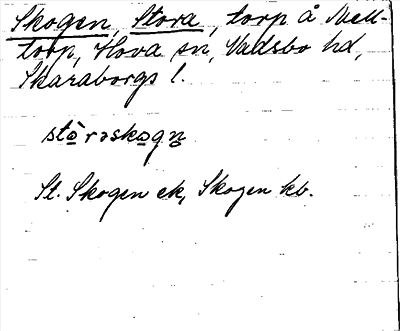 Skogen, Stora, torp å Mell-
torp, Hova sn, Vadsbo hd,
Skaraborgs l.
stòrəskogn̥
St. Skogen ek, Skogen kb.